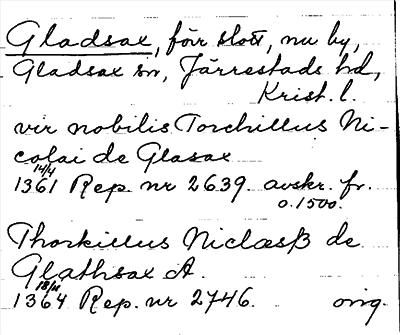 Gladsax, förr slott, nu by,
Gladsax sn, Järrestads hd,
Krist. l.
vir nobilis Torchillus Ni-
colai de Glasax
14/4
1361 Rep. nr 2639. avskr. fr.
o. 1500.
Thorkillus Niclæsß de
Glathsax A.
18/11
1364 Rep. nr 2746. orig.